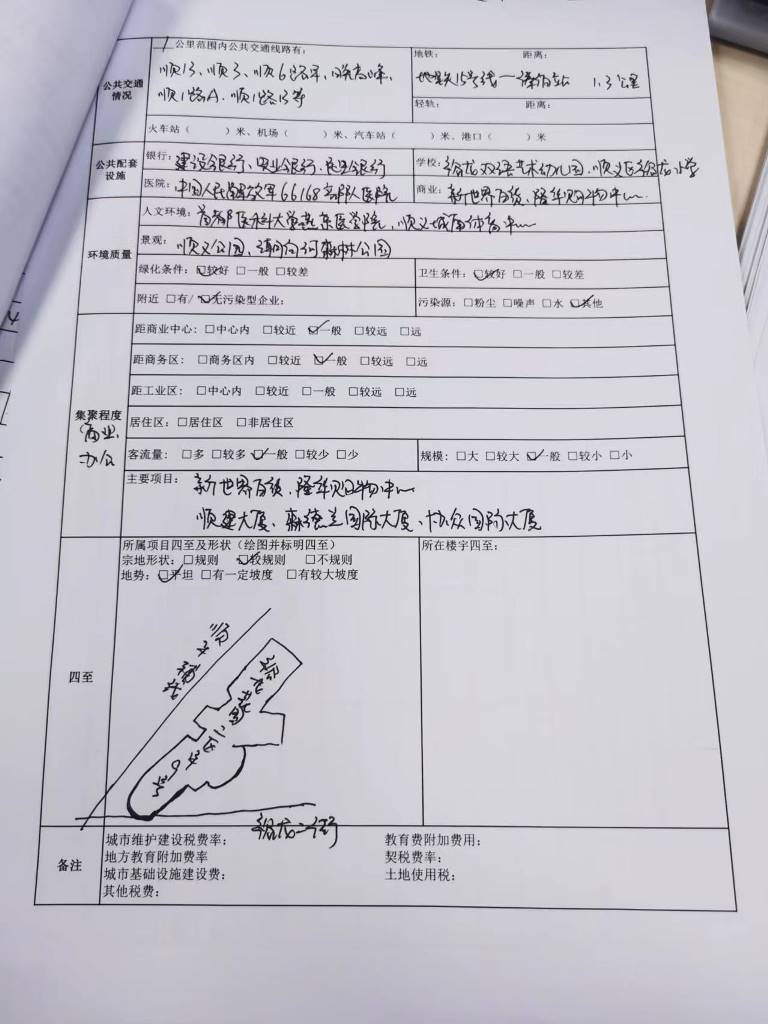 公共交通情况
1公里范围内公共交通线路有:
顺13、顺3、顺6路军、
顺1路A、顺1路区等
地铁: 距离:
地铁15号线 站 1.3公里
轻轨: 距离:
火车站( )米、机场( )米、汽车站( )米、港口( )米
公共配套设施
银行:建设银行、兴业银行、民生银行
学校:裕龙双语艺术幼儿园、顺义区裕龙小学
医院:中国人民解放军66168部队医院
商业:新世界百货、隆华购物中心
环境质量
人文环境:首都医科大学燕京医学院、顺义城南体育中心
景观:顺义公园、潮白河森林公园
绿化条件:☑较好 □一般 □较差
卫生条件:☑较好 □一般 □较差
附近 □有/☑无污染型企业:
污染源:□粉尘 □噪声 □水 ☑其他
集聚程度
(商业、办公
距商业中心:□中心内 □较近 ☑一般 □较远 □远
距商务区:□商务区内 □较近 ☑一般 □较远 □远
距工业区:□中心内 □较近 □一般 □较远 □远
居住区:□居住区 □非居住区
客流量:□多 □较多 ☑一般 □较少 □少
规模:□大 □较大 ☑一般 □较小 □小
主要项目:新世界百货、隆华购物中心
顺建大厦、森德兰国际大厦、协众国际大厦
四至
所属项目四至及形状(绘图并标明四至)
宗地形状:□规则 ☑较规则 □不规则
地势:☑平坦 □有一定坡度 □有较大坡度
所在楼宇四至:
顺平辅线
裕龙二街
备注
城市维护建设税费率:
教育费附加费用:
地方教育附加费率
契税费率:
城市基础设施建设费:
土地使用税:
其他税费: